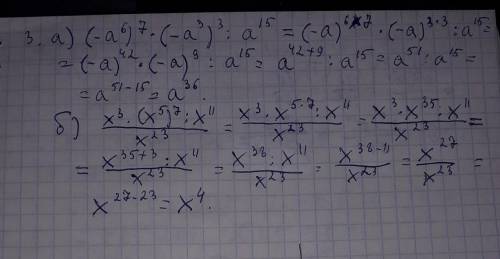 3. а) (-a⁶)⁷ · (-a³)³ : a¹⁵ = (-a)⁶*⁷ · (-a)³·³ : a¹⁵ =
= (-a)⁴² · (-a)⁹ : a¹⁵ = a⁴²⁺⁹ : a¹⁵ = a⁵¹ : a¹⁵ =
= a⁵¹⁻¹⁵ = a³⁶.
б) (x³ · (x⁵)⁷ : x¹¹)/x²³ = (x³ · x⁵·⁷ : x¹¹)/x²³ = (x³ · x³⁵ : x¹¹)/x²³ =
= (x³⁵⁺³ : x¹¹)/x²³ = (x³⁸ : x¹¹)/x²³ = x³⁸⁻¹¹/x²³ = x²⁷/x²³ =
x²⁷⁻²³ = x⁴.